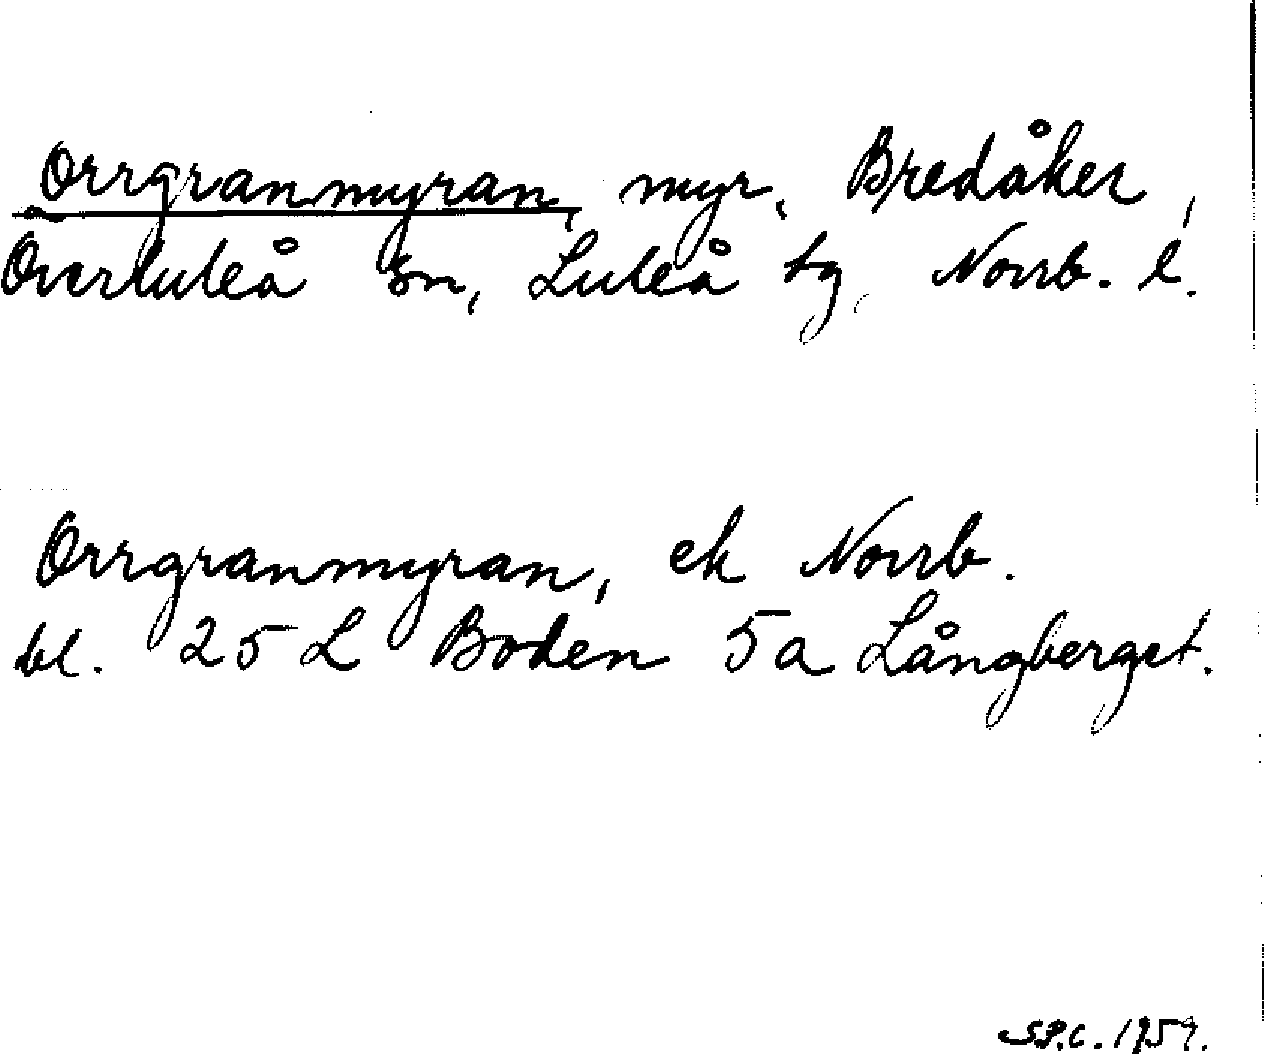 Orrgranmyran, myr, Bredåker,
Överluleå sn, Luleå tg, Norrb. l.
Orrgranmyran, ek Norrb.
bl. 25 L Boden 5a Långberget.
S.P.C. 1959.